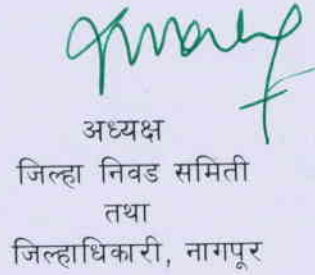 अध्यक्ष
जिल्हा निवड समिती
तथा
जिल्हाधिकारी, नागपूर